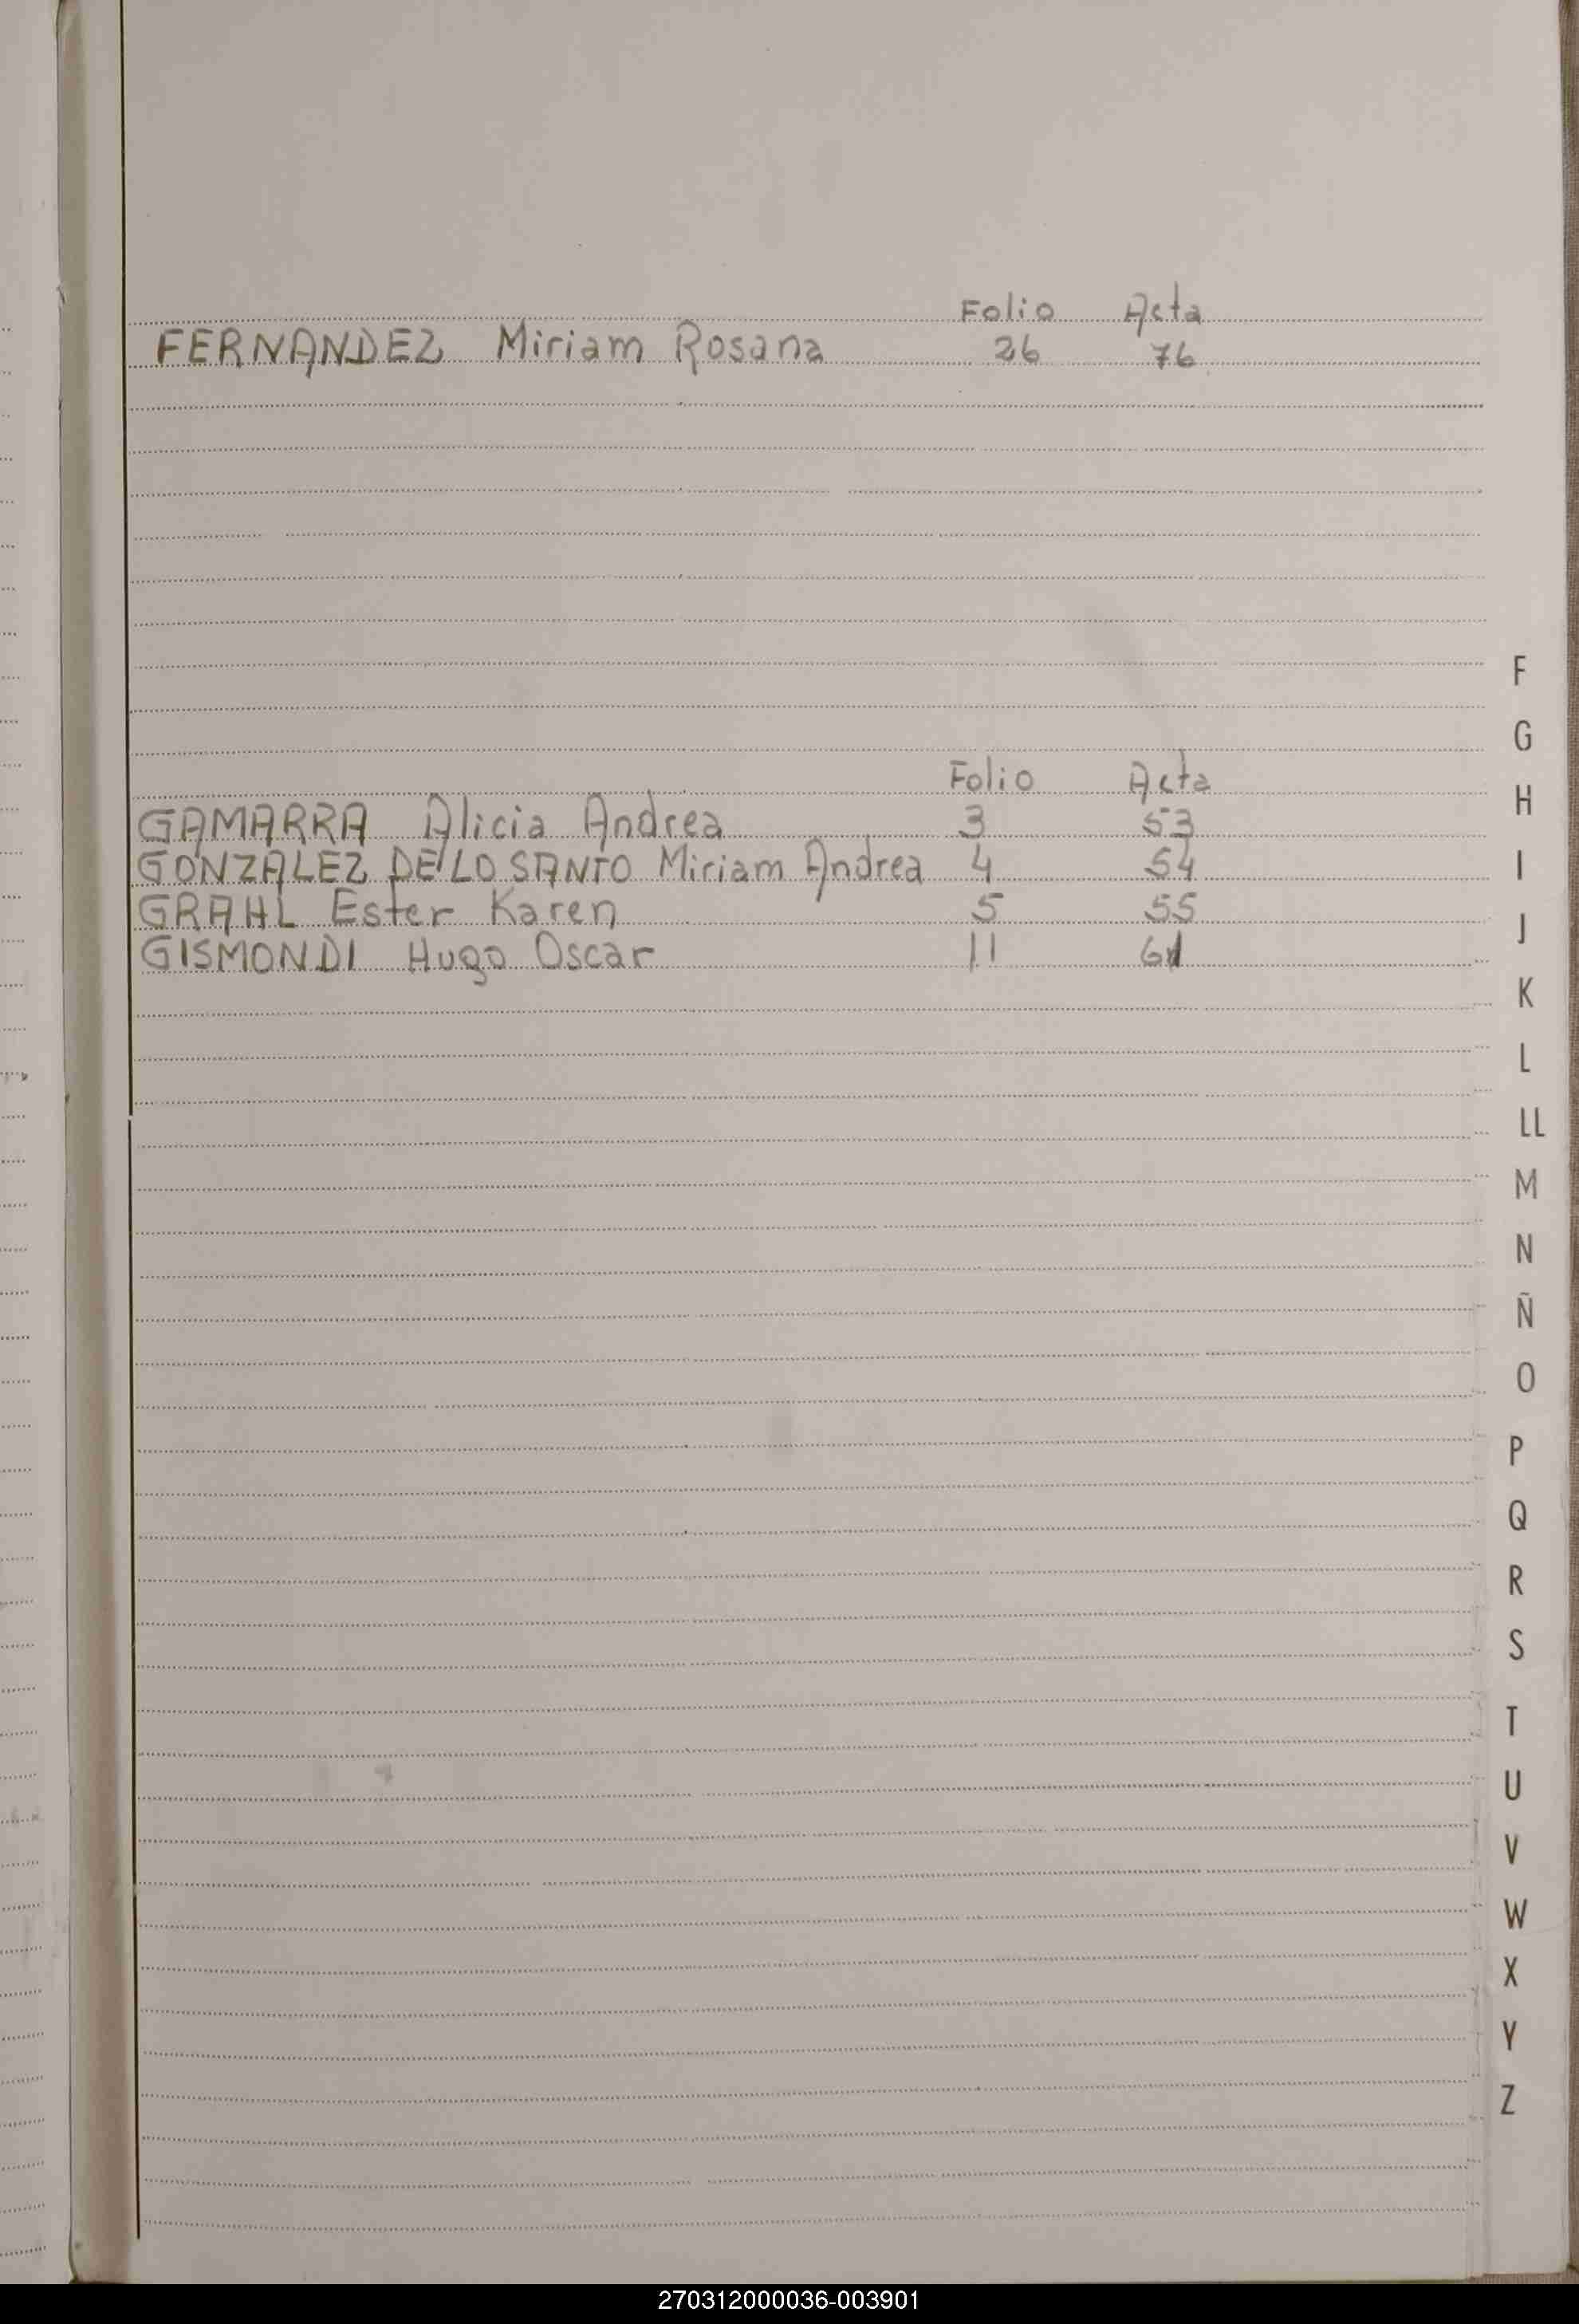 Folio Acta
FERNANDEZ Miriam Rosana 26 76
Folio Acta
GAMARRA Alicia Andrea 3 53
GONZALEZ DE LO SANTO Miriam Andrea 4 54
GRAHL Ester Karen 5 55
GISMONDI Hugo Oscar 11 61
F
G
H
I
J
K
L
LL
M
N
Ñ
O
P
Q
R
S
T
U
V
W
X
Y
Z
270312000036-003901